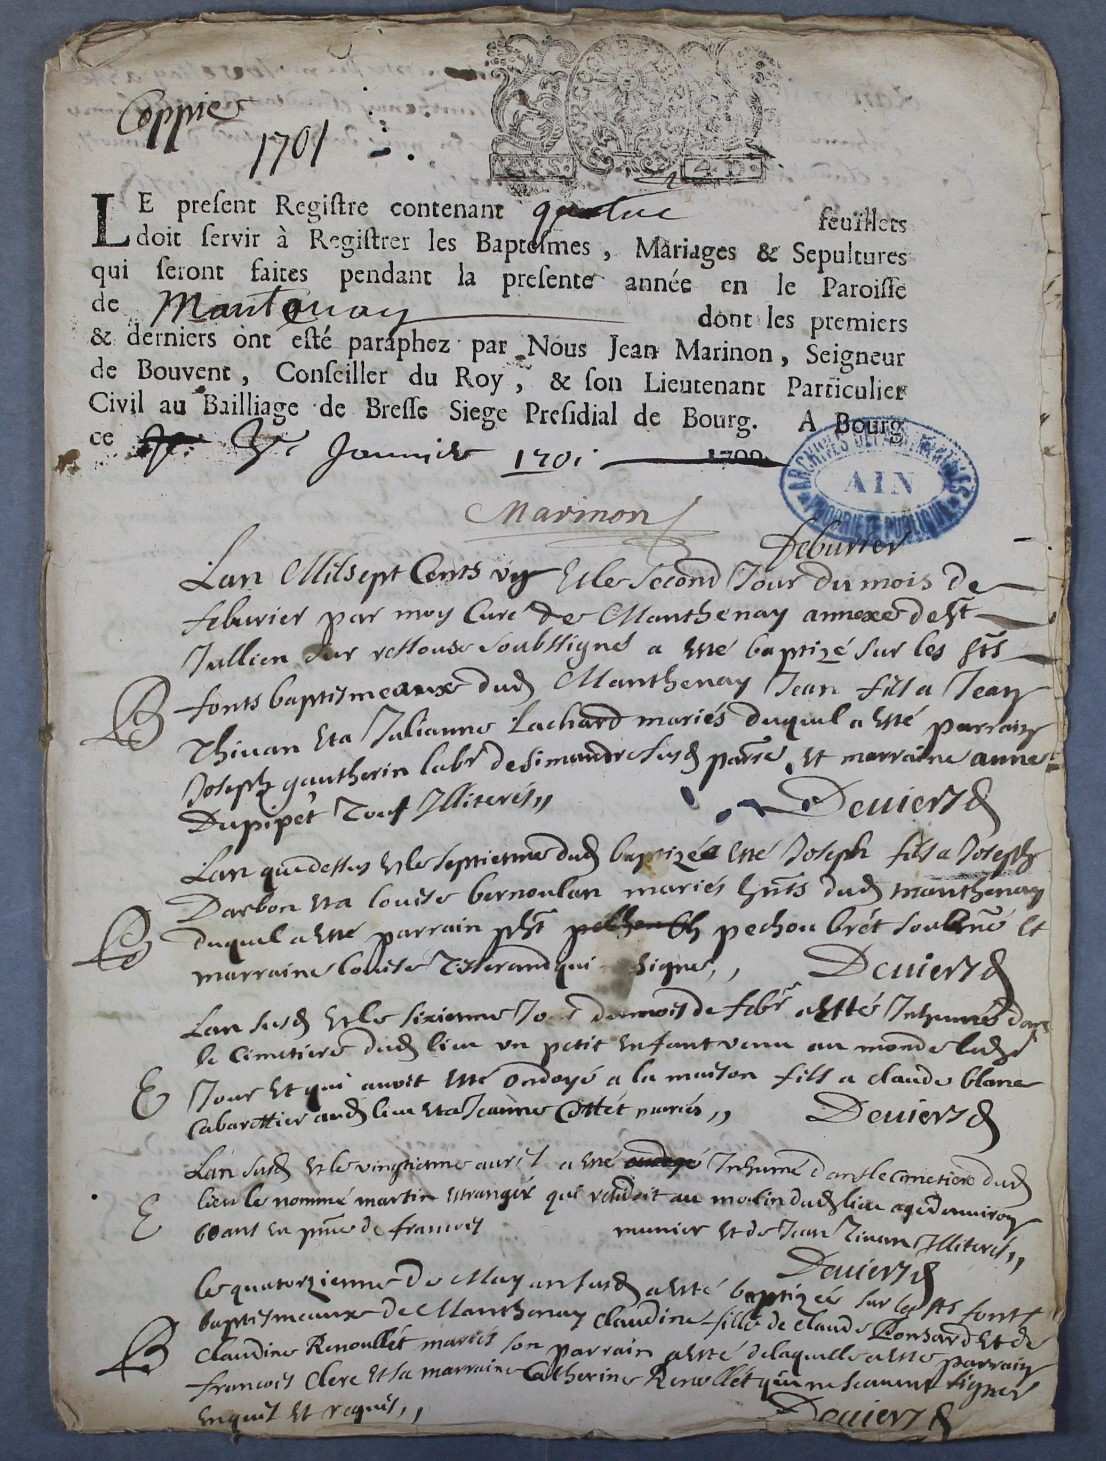 Coppie
1701
LE present Registre contenant quatre feuillets
doit servir à Registrer les Baptesmes, Mariages & Sepultures
qui seront faites pendant la presente année en le Paroisse
de Mantenay dont les premiers
& derniers ont esté paraphez par Nous Jean Marinon, Seigneur
de Bouvent, Conseiller du Roy, & son Lieutenant Particulier
Civil au Bailliage de Bresse Siege Presidial de Bourg. A Bourg
ce Janvier 1701 1700
ARCHIVES DEPARTEMENTALES
AIN
PROPRIETE PUBLIQUE
Marinon
feburier
Lan Mil sept Cents un Et le second Jour du mois de
feburier par moy Curé de Manthenay annexe de St
Jullien sur ressouse soubssigné a esté baptizé sur les sts
B
fonts baptismeaux dud Manthenay Jean fils a Jean
Thivan et a Julianne Lachard mariés duquel a esté parrain
Joseph gautherin labr de Simandre susd parse et marraine anne
Dupipet Tous Illiterés,,
Deviers d
Lan que dessus et le septiesme dud baptizé a esté Joseph fils a Joseph
Darbon et a louise bernoulan mariés hnts dud manthenay
B
duquel a esté parrain pechou et
marraine louise Tisserand qui signe,,
Deviers d
Lan susd et le sixiesme Jour du mois de febr a esté Inhumé dans
le Cimetiere dud lieu un petit enfant venu au monde led
E
Jour et qui avoit esté ondoyé a la maison fils a claude blanc
Cabarettier aud lieu et a Jeanne Cottet mariés,,
Deviers d
Lan susd et le vingtiesme avril a esté Inhumé dans le cimetiere dud
E
lieu le nommé martin estranger qui residoit au molin dud lieu agé denviron
60 ans en pnce de francois munier et de Jean Tivan Illiterés,,
Deviers d
le quatorzienne de May an susd a esté baptizée sur les sts fonts
baptismeaux de Manthenay Claudine fille de claude Ronsard et de
B
Claudine Renoullet mariés son parrain a esté delaquelle a esté parrain
francois Clerc et sa marraine Catherine Renollet qui ne scavent signer
enquis et requis,,
Deviers d